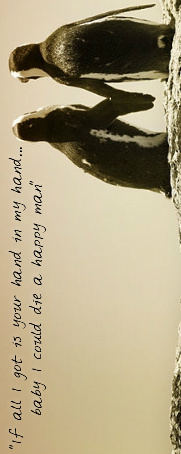 "If all I got is your hand in my hand...
baby I could die a happy man"